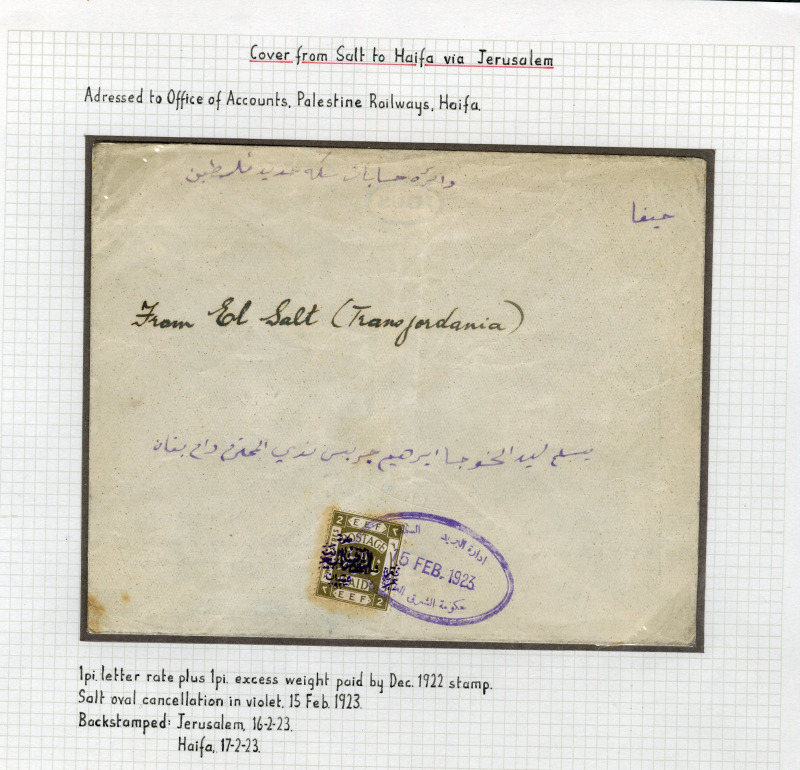 Cover from Salt to Haifa via Jerusalem
Adressed to Office of Accounts, Palestine Railways, Haifa.
دائرة حسابات سكة حديد فلسطين
حيفا
From El Salt (Transjordania)
يسلم ليد الخوجا ابرهيم جريس المحترم دام بقاه
2 E E F ٢
POSTAGE
PAID
٢ E E F 2
ادارة البريد
15 FEB. 1923
حكومة الشرق
1pi. letter rate plus 1pi. excess weight paid by Dec. 1922 stamp.
Salt oval cancellation in violet, 15 Feb. 1923.
Backstamped: Jerusalem, 16-2-23.
Haifa, 17-2-23.